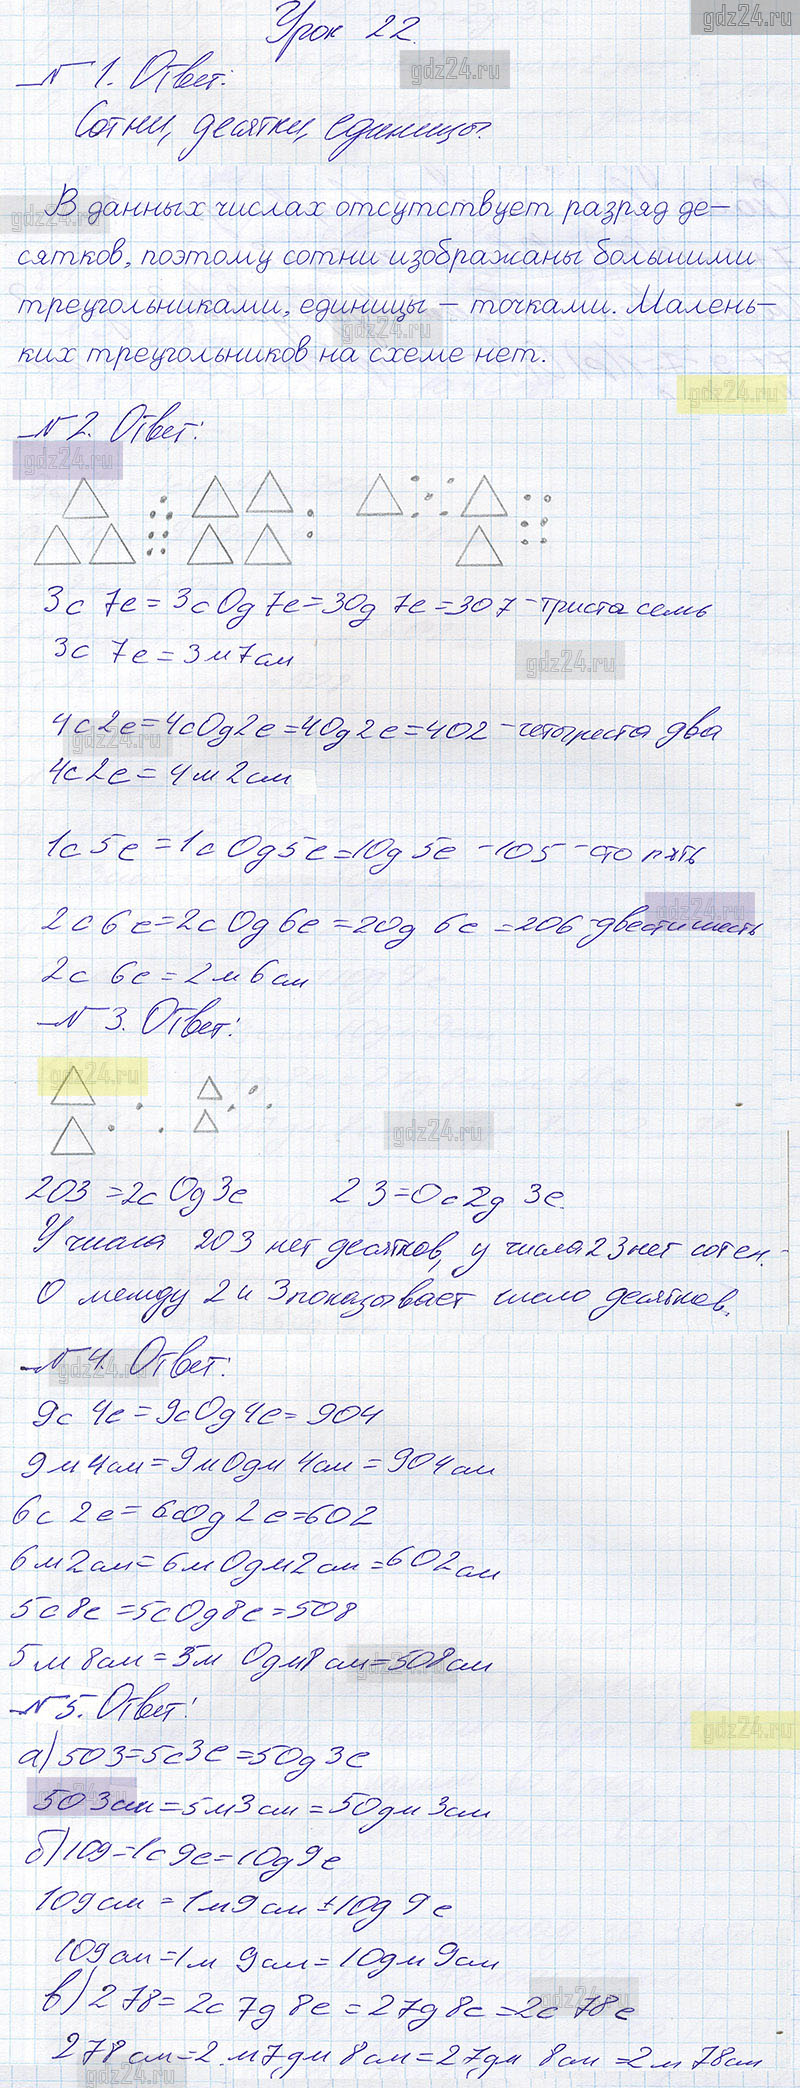 gdz24.ru
Урок 22.
№ 1. Ответ:
gdz24.ru
Сотни, десятки, единицы.
В данных числах отсутствует разряд де-
gdz24.ru
сятков, поэтому сотни изображаны большими
треугольниками, единицы – точками. Малень-
gdz24.ru
ких треугольников на схеме нет.
gdz24.ru
№ 2. Ответ:
gdz24.ru
3с 7е = 3с 0д 7е = 30д 7е = 307 - триста семь
3с 7е = 3м 7см
gdz24.ru
4с 2е = 4с 0д 2е = 40д 2е = 402 - четыреста два
gdz24.ru
4с 2е = 4м 2см
1с 5е = 1с 0д 5е = 10д 5е - 105 - сто пять
gdz24.ru
2с 6е = 2с 0д 6е = 20д 6е = 206 - двести шесть
2с 6е = 2м 6см
№ 3. Ответ:
gdz24.ru
gdz24.ru
203 = 2с 0д 3е 23 = 0с 2д 3е.
У числа 203 нет десятков, у числа 23 нет сотен.
0 между 2 и 3 показывает число десятков.
№ 4. Ответ:
gdz24.ru
9с 4е = 9с 0д 4е = 904
9м 4см = 9м 0дм 4см = 904см
6с 2е = 6с 0д 2е = 602
6м 2см = 6м 0дм 2см = 602см
5с 8е = 5с 0д 8е = 508
5м 8см = 5м 0дм 8см = 508см
gdz24.ru
№ 5. Ответ:
gdz24.ru
а) 503 = 5с 3е = 50д 3е
gdz24.ru
503см = 5м 3см = 50дм 3см
б) 109 = 1с 9е = 10д 9е
109см = 1м 9см = 10д 9е
109см = 1м 9см = 10дм 9см
в) 278 = 2с 7д 8е = 27д 8е = 2с 78е
gdz24.ru
278см = 2м 7дм 8см = 27дм 8см = 2м 78см
gdz24.ru